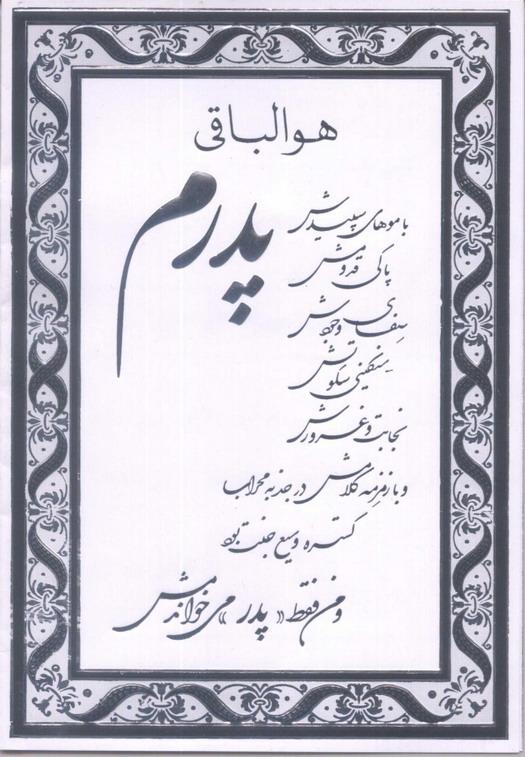 هوالباقی
پدرم
با موهای سپیدش
پاکی قدومش
ژرفای وجودش
سنگینی سکوتش
نجابت و غرورش
و با زمزمه کلامش در جذبه محرابها
گستره وسیع جنت بود
و من فقط «پدر» می خواندمش